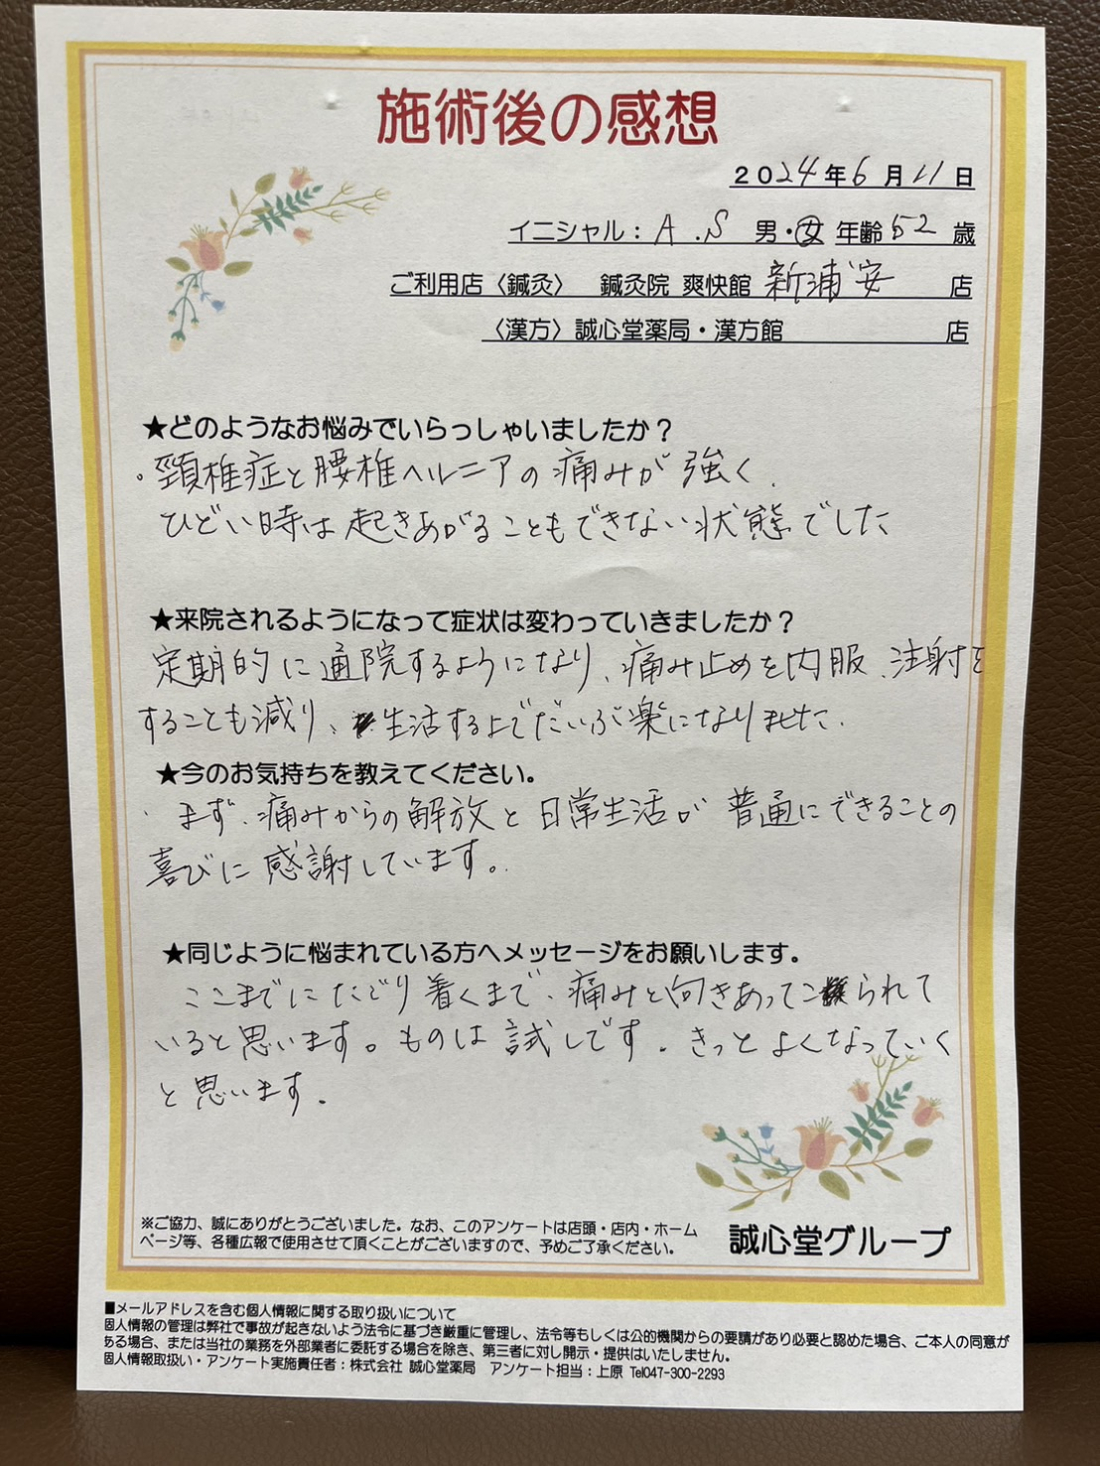 施術後の感想
2024年6月11日
イニシャル：A.S 男・女 年齢52歳
ご利用店〈鍼灸〉 鍼灸院 爽快館 新浦安 店
〈漢方〉誠心堂薬局・漢方館 店
★どのようなお悩みでいらっしゃいましたか？
・頸椎症と腰椎ヘルニアの痛みが強く、
ひどい時は起きあがることもできない状態でした
★来院されるようになって症状は変わっていきましたか？
定期的に通院するようになり、痛み止めを内服、注射を
することも減り、生活する上でだいぶ楽になりました.
★今のお気持ちを教えてください。
まず、痛みからの解放と日常生活が普通にできることの
喜びに感謝しています。
★同じように悩まれている方へメッセージをお願いします。
ここまでにたどり着くまで、痛みと向きあってこられて
いると思います。ものは試しです。きっとよくなっていく
と思います.
※ご協力、誠にありがとうございました。なお、このアンケートは店頭・店内・ホーム
ページ等、各種広報で使用させて頂くことがございますので、予めご了承ください。
誠心堂グループ
■メールアドレスを含む個人情報に関する取り扱いについて
個人情報の管理は弊社で事故が起きないよう法令に基づき厳重に管理し、法令等もしくは公的機関からの要請があり必要と認めた場合、ご本人の同意が
ある場合、または当社の業務を外部業者に委託する場合を除き、第三者に対し開示・提供はいたしません。
個人情報取扱い・アンケート実施責任者：株式会社 誠心堂薬局 アンケート担当：上原 Tel047-300-2293